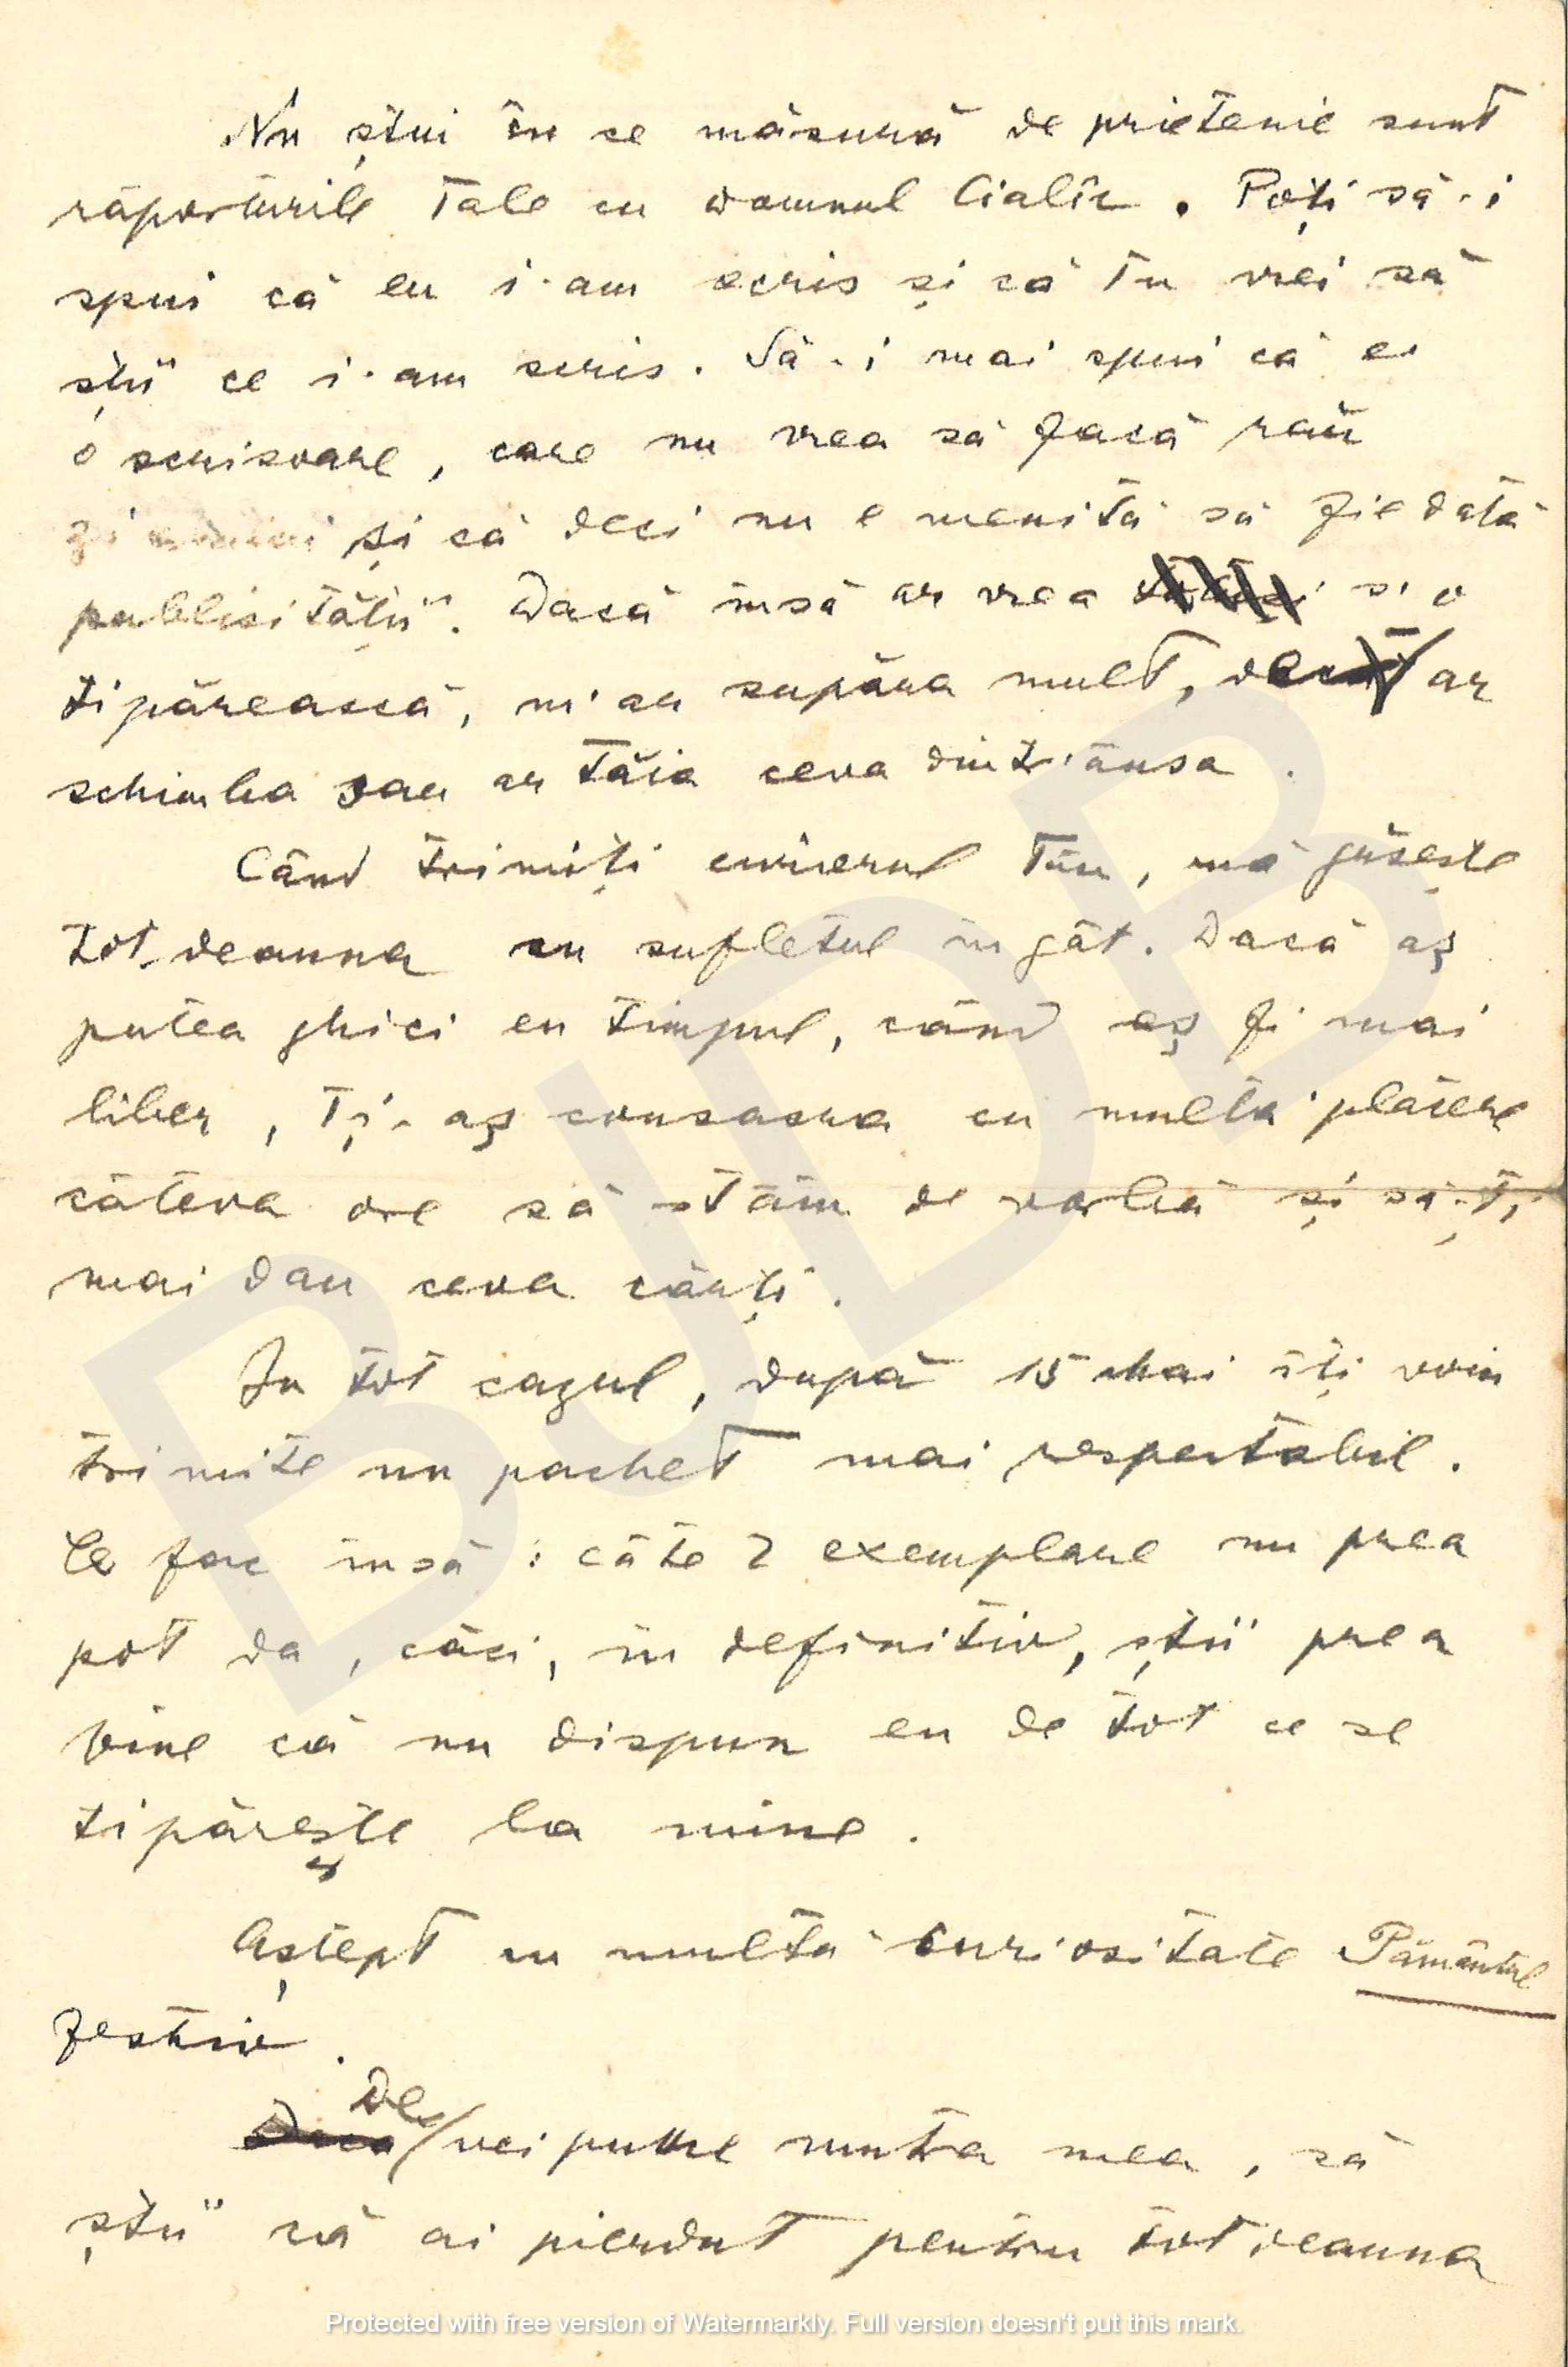 Nu știu în ce măsură de prietenie sunt
raporturile tale cu domnul Cialîc. Poți să-i
spui că eu i-am scris și că tu vrei să
știi ce i-am scris. Să-i mai spui că e
o scrisoare, care nu vrea să facă rău
și că deci nu e menită să fie dată
publicității. Dacă însă ar vrea s'o
tipărească, m'ar supăra mult, de ar
schimba sau ar tăia ceva dintr'ânsa.
Când trimiți curierul tău, mă găsește
totdeauna cu sufletul în gât. Dacă aș
putea ghici eu timpul, când aș fi mai
liber, Ți-aș consacra cu multă plăcere
câteva ore să stăm de vorbă și să-Ți
mai dau ceva cărți.
In tot cazul, după 15 Mai îți voiu
trimite un pachet mai respectabil.
Ce fac însă: câte 2 exemplare nu prea
pot da, căci, în definitiv, știi prea
bine că nu dispun eu de tot ce se
tipărește la mine.
Aștept cu multă curiositate Pământul
festiv.
De vei pune nunta mea, să
știi că ai pierdut pentru totdeauna
BJDB
Protected with free version of Watermarkly. Full version doesn't put this mark.